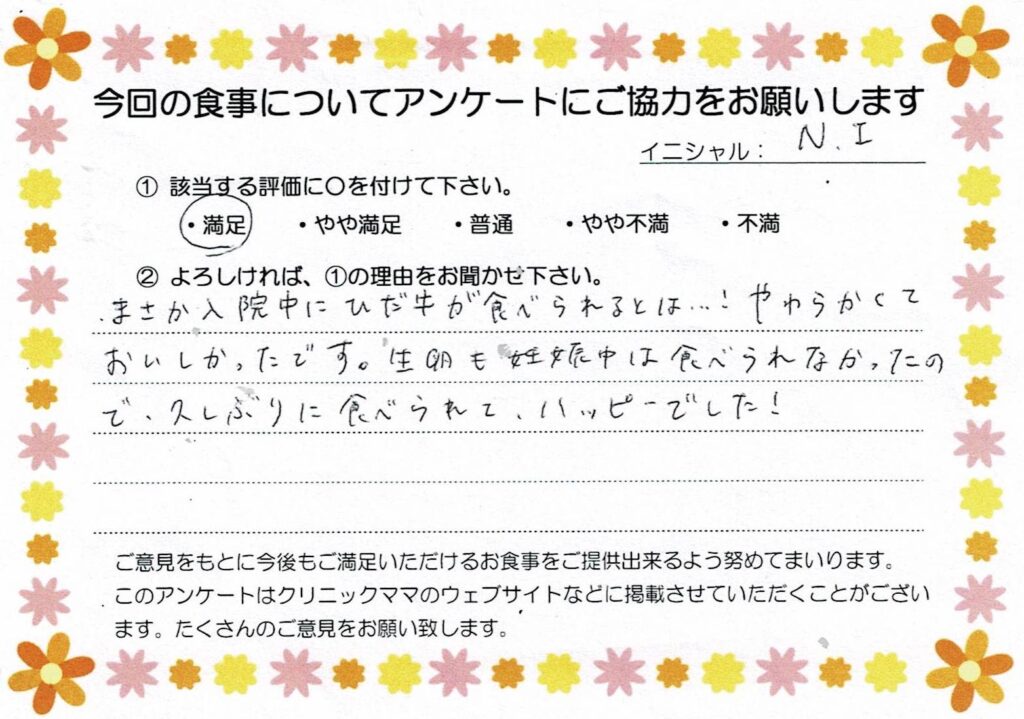 今回の食事についてアンケートにご協力をお願いします
イニシャル： N.I
① 該当する評価に〇を付けて下さい。
・満足 ・やや満足 ・普通 ・やや不満 ・不満
② よろしければ、①の理由をお聞かせ下さい。
まさか入院中にひだ牛が食べられるとは…！やわらかくて
おいしかったです。生卵も妊娠中は食べられなかったの
で、久しぶりに食べられて、ハッピーでした！
ご意見をもとに今後もご満足いただけるお食事をご提供出来るよう努めてまいります。
このアンケートはクリニックママのウェブサイトなどに掲載させていただくことがござい
ます。たくさんのご意見をお願い致します。